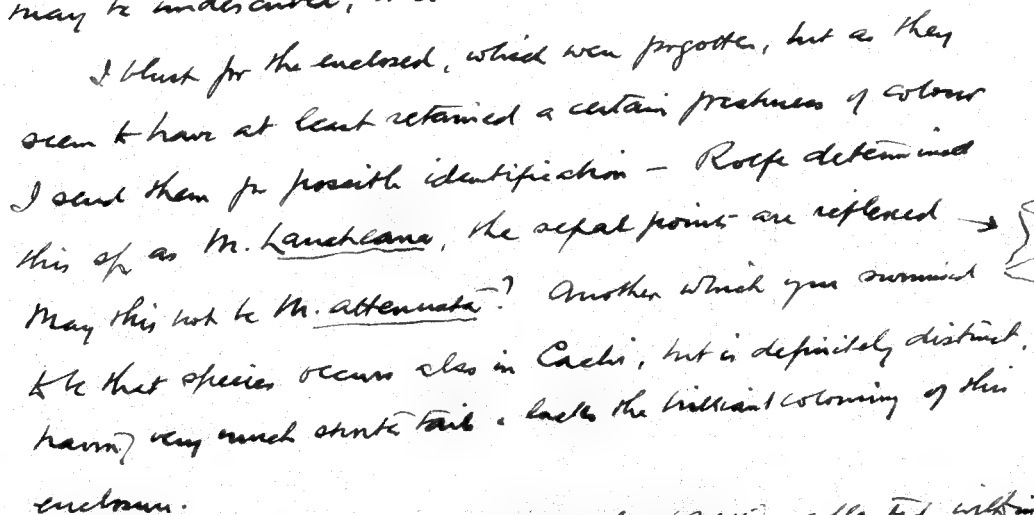 may be undescribed,
I blush for the enclosed, which were forgotten, but as they
seem to have at least retained a certain freshness of colour
I send them for possible identification — Rolfe determined
this sp as M. Laucheana, the sepal points are reflexed →
May this not be M. attenuata? Another which you surmised
to be that species occurs also in Cachi, but is definitely distinct,
having very much shorter tails & lacks the brilliant colouring of this
enclosure.